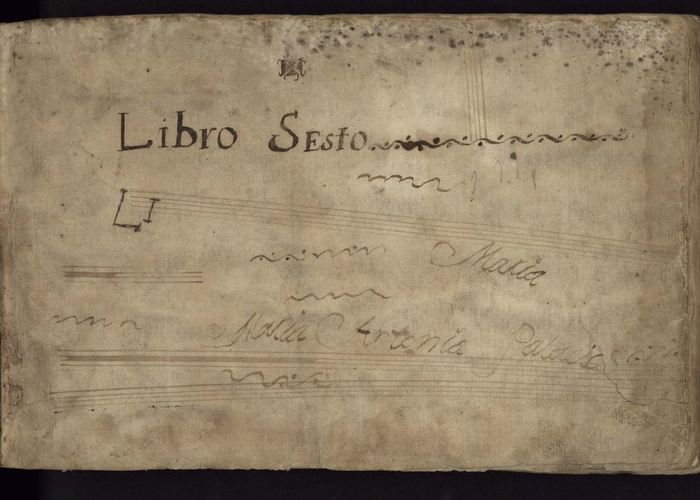 Libro Sesto
LI
Maria
Maria Antonia